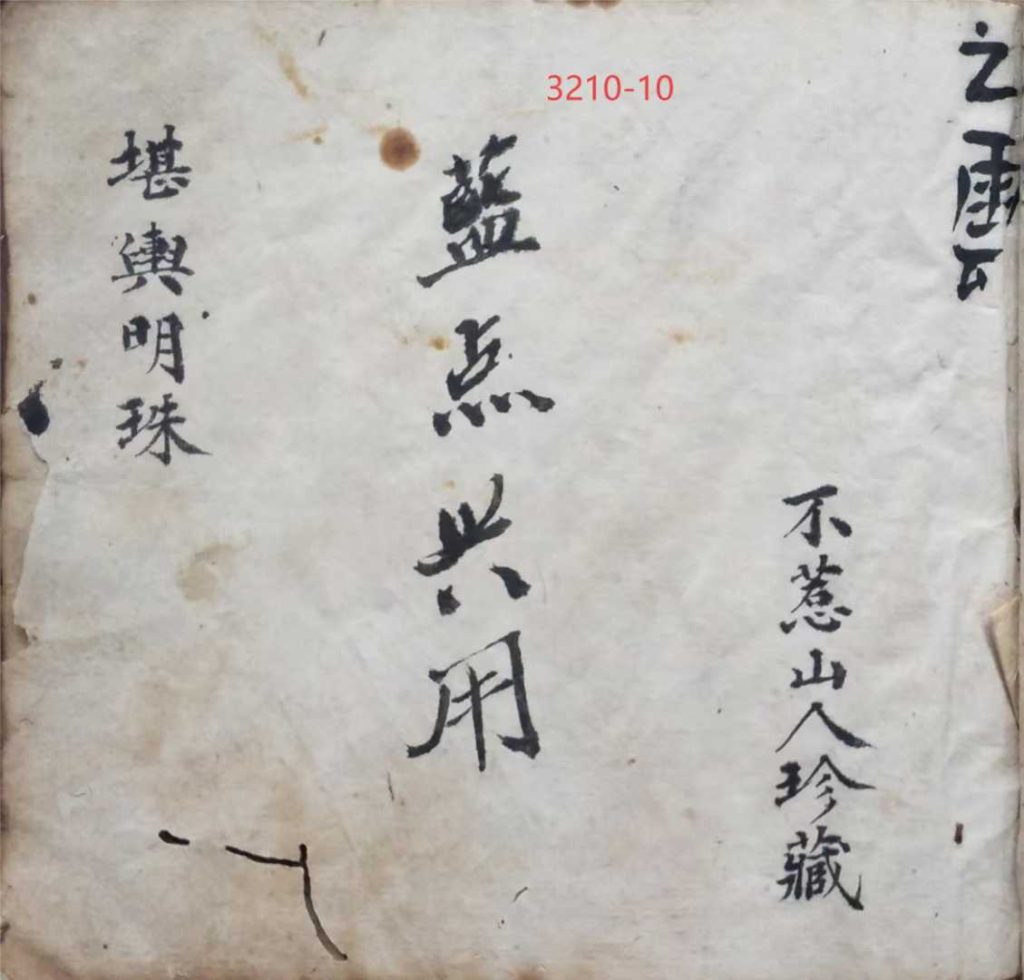 3210-10
之
不惹山人珍藏
藍点共用
堪輿明珠